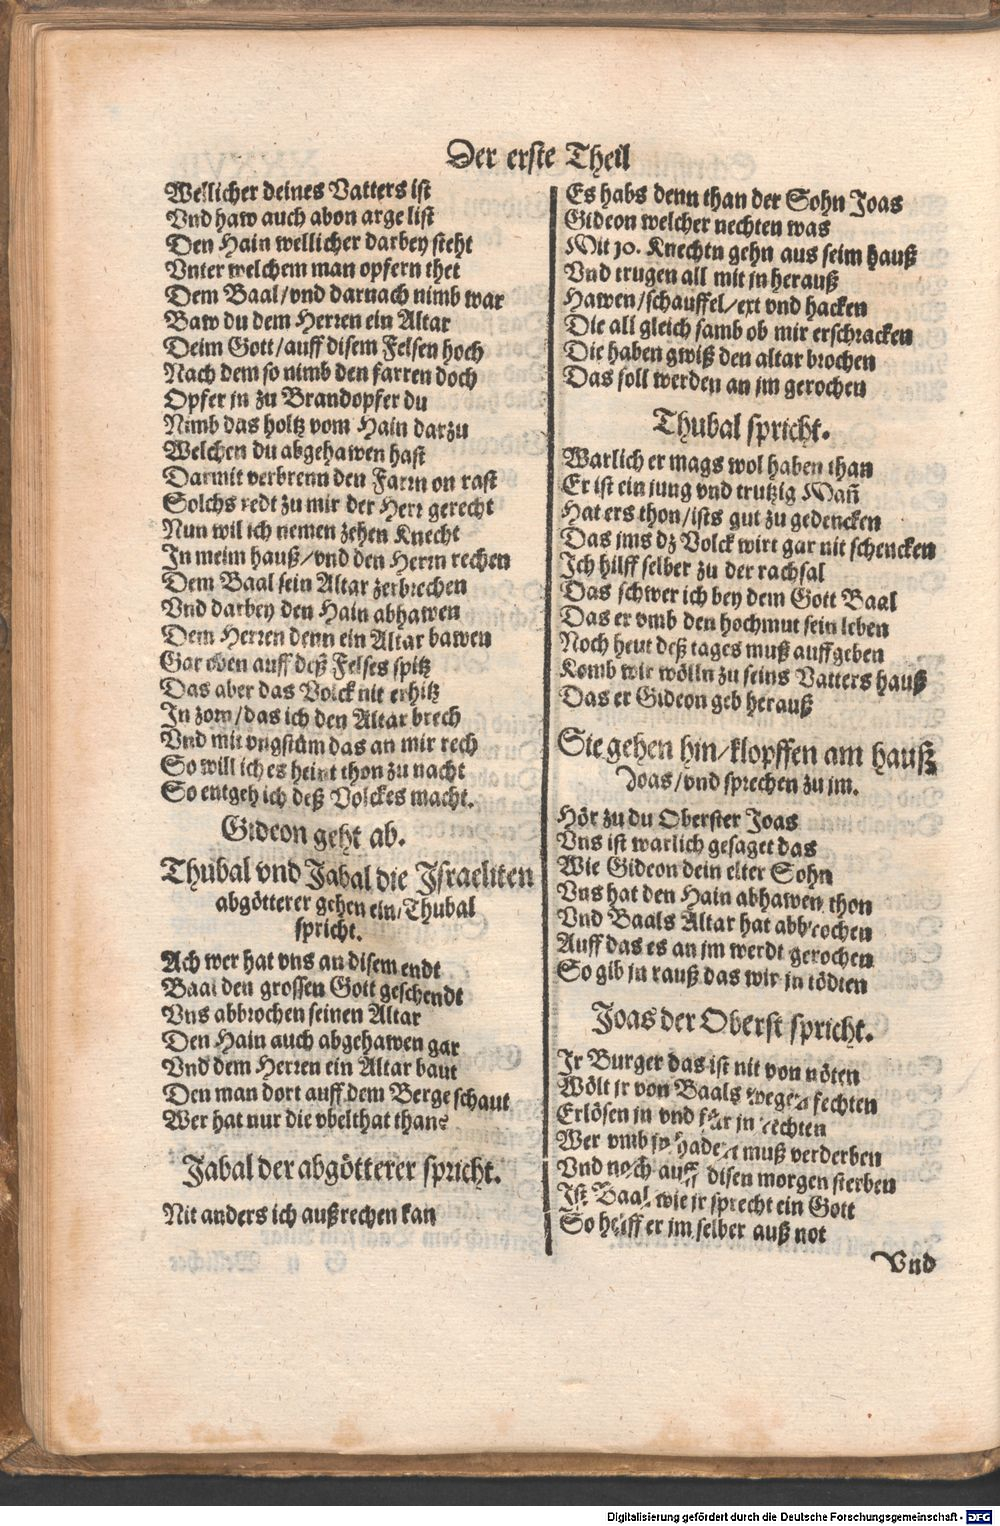 Der erste Theil
Wellicher deines Vatters ist
Vnd haw auch abon arge list
Den Hain wellicher darbey steht
Vnter welchem man opfern thet
Dem Baal/vnd darnach nimb war
Baw du dem Herren ein Altar
Deim Gott/auff disem Felsen hoch
Nach dem so nimb den farren doch
Opfer jn zu Brandopfer du
Nimb das holtz vom Hain darzu
Welchen du abgehawen hast
Darmit verbrenn den Farrn on rast
Solchs redt zu mir der Herr gerecht
Nun wil ich nemen zehen Knecht
In meim hauß/vnd den Herrn rechen
Dem Baal sein Altar zerbrechen
Vnd darbey den Hain abhawen
Dem Herren denn ein Altar bawen
Gar oben auff deß Felses spitz
Das aber das Volck nit erhitz
In zorn/das ich den Altar brech
Vnd mit vngstüm das an mir rech
So will ich es heint thon zu nacht
So entgeh ich deß Volckes macht.
Gideon geht ab.
Thubal vnd Jabal die Israeliten
abgötterer gehen ein/Thubal
spricht.
Ach wer hat vns an disem endt
Baal den grossen Gott geschendt
Vns abbrochen seinen Altar
Den Hain auch abgehawen gar
Vnd dem Herren ein Altar baut
Den man dort auff dem Berge schaut
Wer hat nur die vbelthat than?
Jabal der abgötterer spricht.
Nit anders ich außrechen kan
Es habs denn than der Sohn Joas
Gideon welcher nechten was
Mit 10. Knechtn gehn aus seim hauß
Vnd trugen all mit jn herauß
Hawen/schauffel/ext vnd hacken
Die all gleich samb ob mir erschracken
Die haben gwiß den altar brochen
Das soll werden an jm gerochen
Thubal spricht.
Warlich er mags wol haben than
Er ist ein jung vnd trutzig Mañ
Hat ers thon/ists gut zu gedencken
Das jms dz Volck wirt gar nit schencken
Ich hilff selber zu der rachsal
Das schwer ich bey dem Gott Baal
Das er vmb den hochmut sein leben
Noch heut deß tages muß auffgeben
Komb wir wölln zu seins Vatters hauß
Das er Gideon geb herauß
Sie gehen hin/klopffen am hauß
Joas/vnd sprechen zu jm.
Hör zu du Oberster Joas
Vns ist warlich gesaget das
Wie Gideon dein elter Sohn
Vns hat den Hain abhawen thon
Vnd Baals Altar hat abbrochen
Auff das es an jm werdt gerochen
So gib jn rauß das wir jn tödten
Joas der Oberst spricht.
Ir Burger das ist nit von nöten
Wölt jr von Baals wegen fechten
Erlösen jn vnd für jn rechten
Wer vmb jn hadert muß verderben
Vnd noch auff disen morgen sterben
Ist Baal wie jr sprecht ein Gott
So helff er jm selber auß not
Vnd
Digitalisierung gefördert durch die Deutsche Forschungsgemeinschaft - DFG